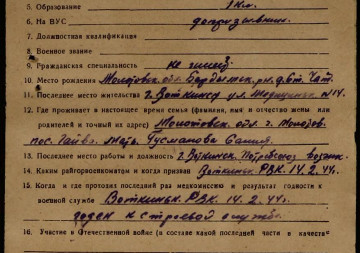 5. Образование 1 кл.
6. На ВУС допризывник
7. Должностная квалификация
8. Военное звание
9. Гражданская специальность не имеет
10. Место рождения Молотовск. обл. Бардымск. рн. д.
11. Последнее место жительства г. Воткинск ул. №14.
12. Где проживает в настоящее время семья (фамилия, имя и отчество жены или
родителей и точный их адрес) Молотовск. обл. г. Молотов.
пос. Гайва. Мать Гусманова
13. Последнее место работы и должность г. Воткинск
14. Каким райгорвоенкоматом и когда призван Воткинск. РВК. 14.2.44г.
15. Когда и где проходил последний раз медкомиссию и результат годности к
военной службе Воткинск. РВК. 14.2.44г.
годен к строевой службе.
16. Участие в Отечественной войне (в составе какой последней части и качестве